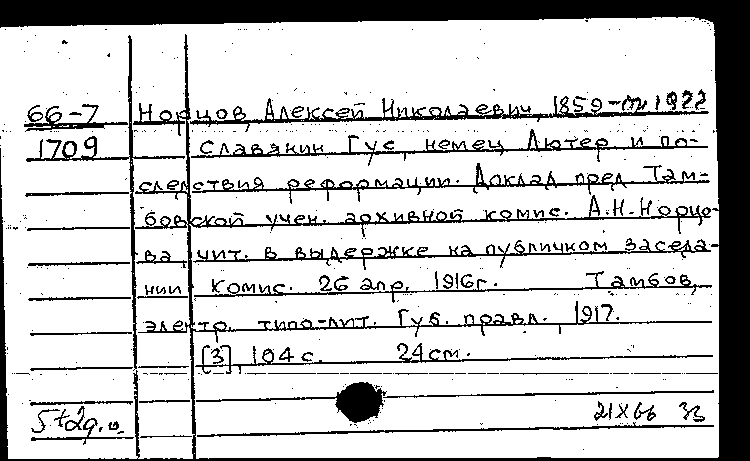 66-7 Норцов, Алексей Николаевич, 1859-1922
1709 Славянин Гус, немец Лютер и по-
следствия реформации. Доклад пред. Там-
бовской учен. архивной комис. А.Н. Норцо-
ва, чит. в выдержке на публичном заседа-
нии Комис. 26 апр. 1916г. Тамбов,
электр. типо-лит. Губ. правл., 1917.
[3], 104 с. 24 см.
21 X 66